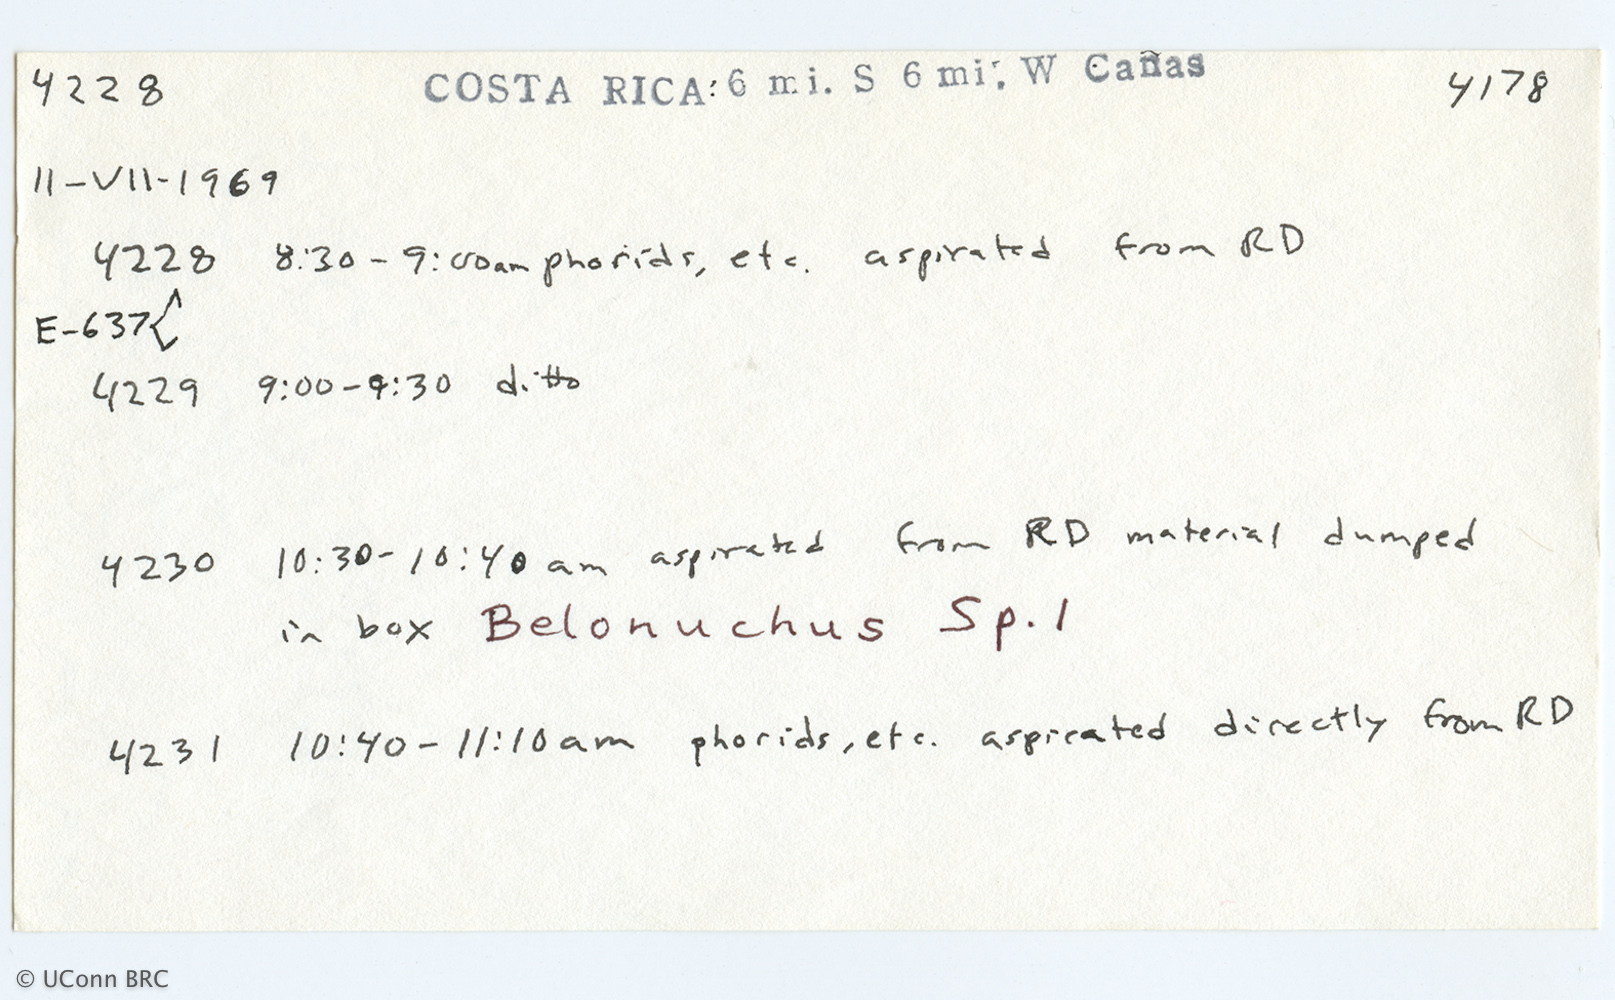 4228 COSTA RICA: 6 mi. S 6 mi. W Cañas 4178
11-VII-1969
4228 8:30-9:00am phorids, etc. aspirated from RD
E-637<
4229 9:00-9:30 ditto
4230 10:30-10:40 am aspirated from RD material dumped
in box Belonuchus Sp. 1
4231 10:40-11:10 am phorids, etc. aspirated directly from RD
© UConn BRC